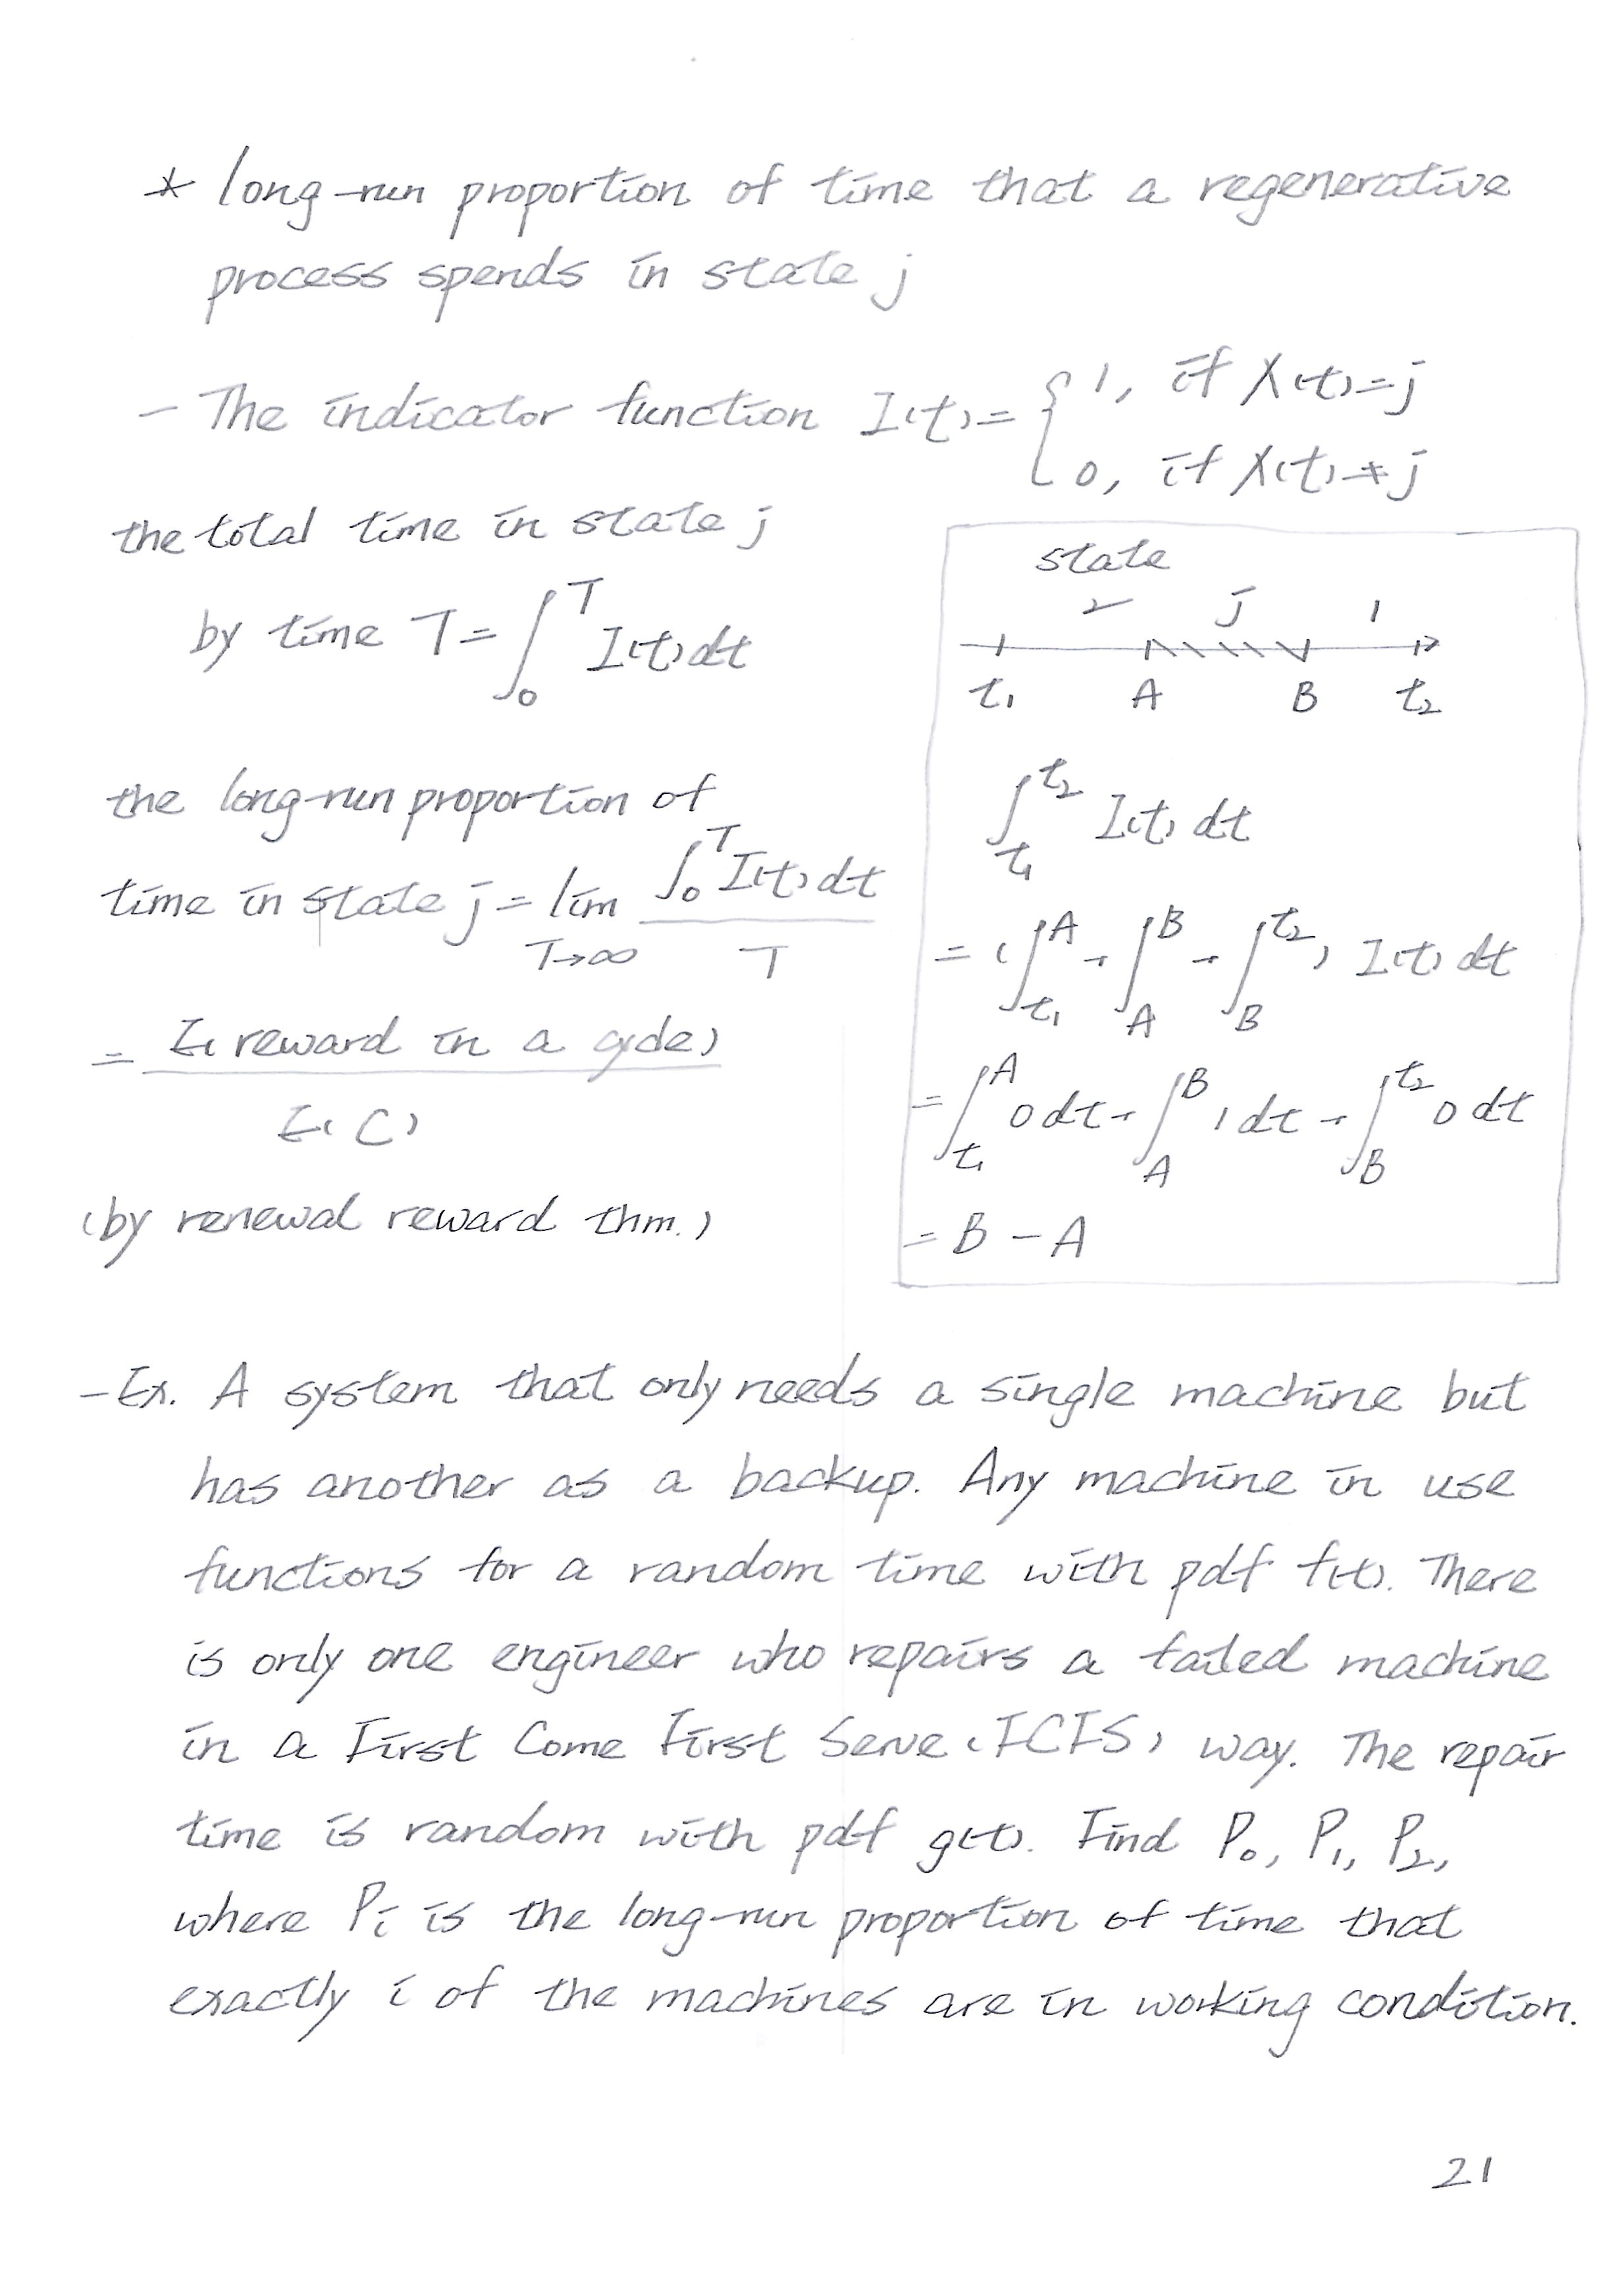 * long-run proportion of time that a regenerative
process spends in state j
- The indicator function I(t) = { 1, if X(t)=j
0, if X(t)≠j
the total time in state j
by time T = ∫_0^T I(t)dt
the long-run proportion of
time in state j = lim_{T→∞} ∫_0^T I(t)dt / T
= E(reward in a cycle) / E(C)
(by renewal reward thm.)
state
2 j 1
t₁ A B t₂
∫_{t₁}^{t₂} I(t) dt
= (∫_{t₁}^A + ∫_A^B + ∫_B^{t₂}) I(t) dt
= ∫_{t₁}^A 0 dt + ∫_A^B 1 dt + ∫_B^{t₂} 0 dt
= B - A
- Ex. A system that only needs a single machine but
has another as a backup. Any machine in use
functions for a random time with pdf f(t). There
is only one engineer who repairs a failed machine
in a First Come First Serve (FCFS) way. The repair
time is random with pdf g(t). Find P₀, P₁, P₂,
where Pi is the long-run proportion of time that
exactly i of the machines are in working condition.
21